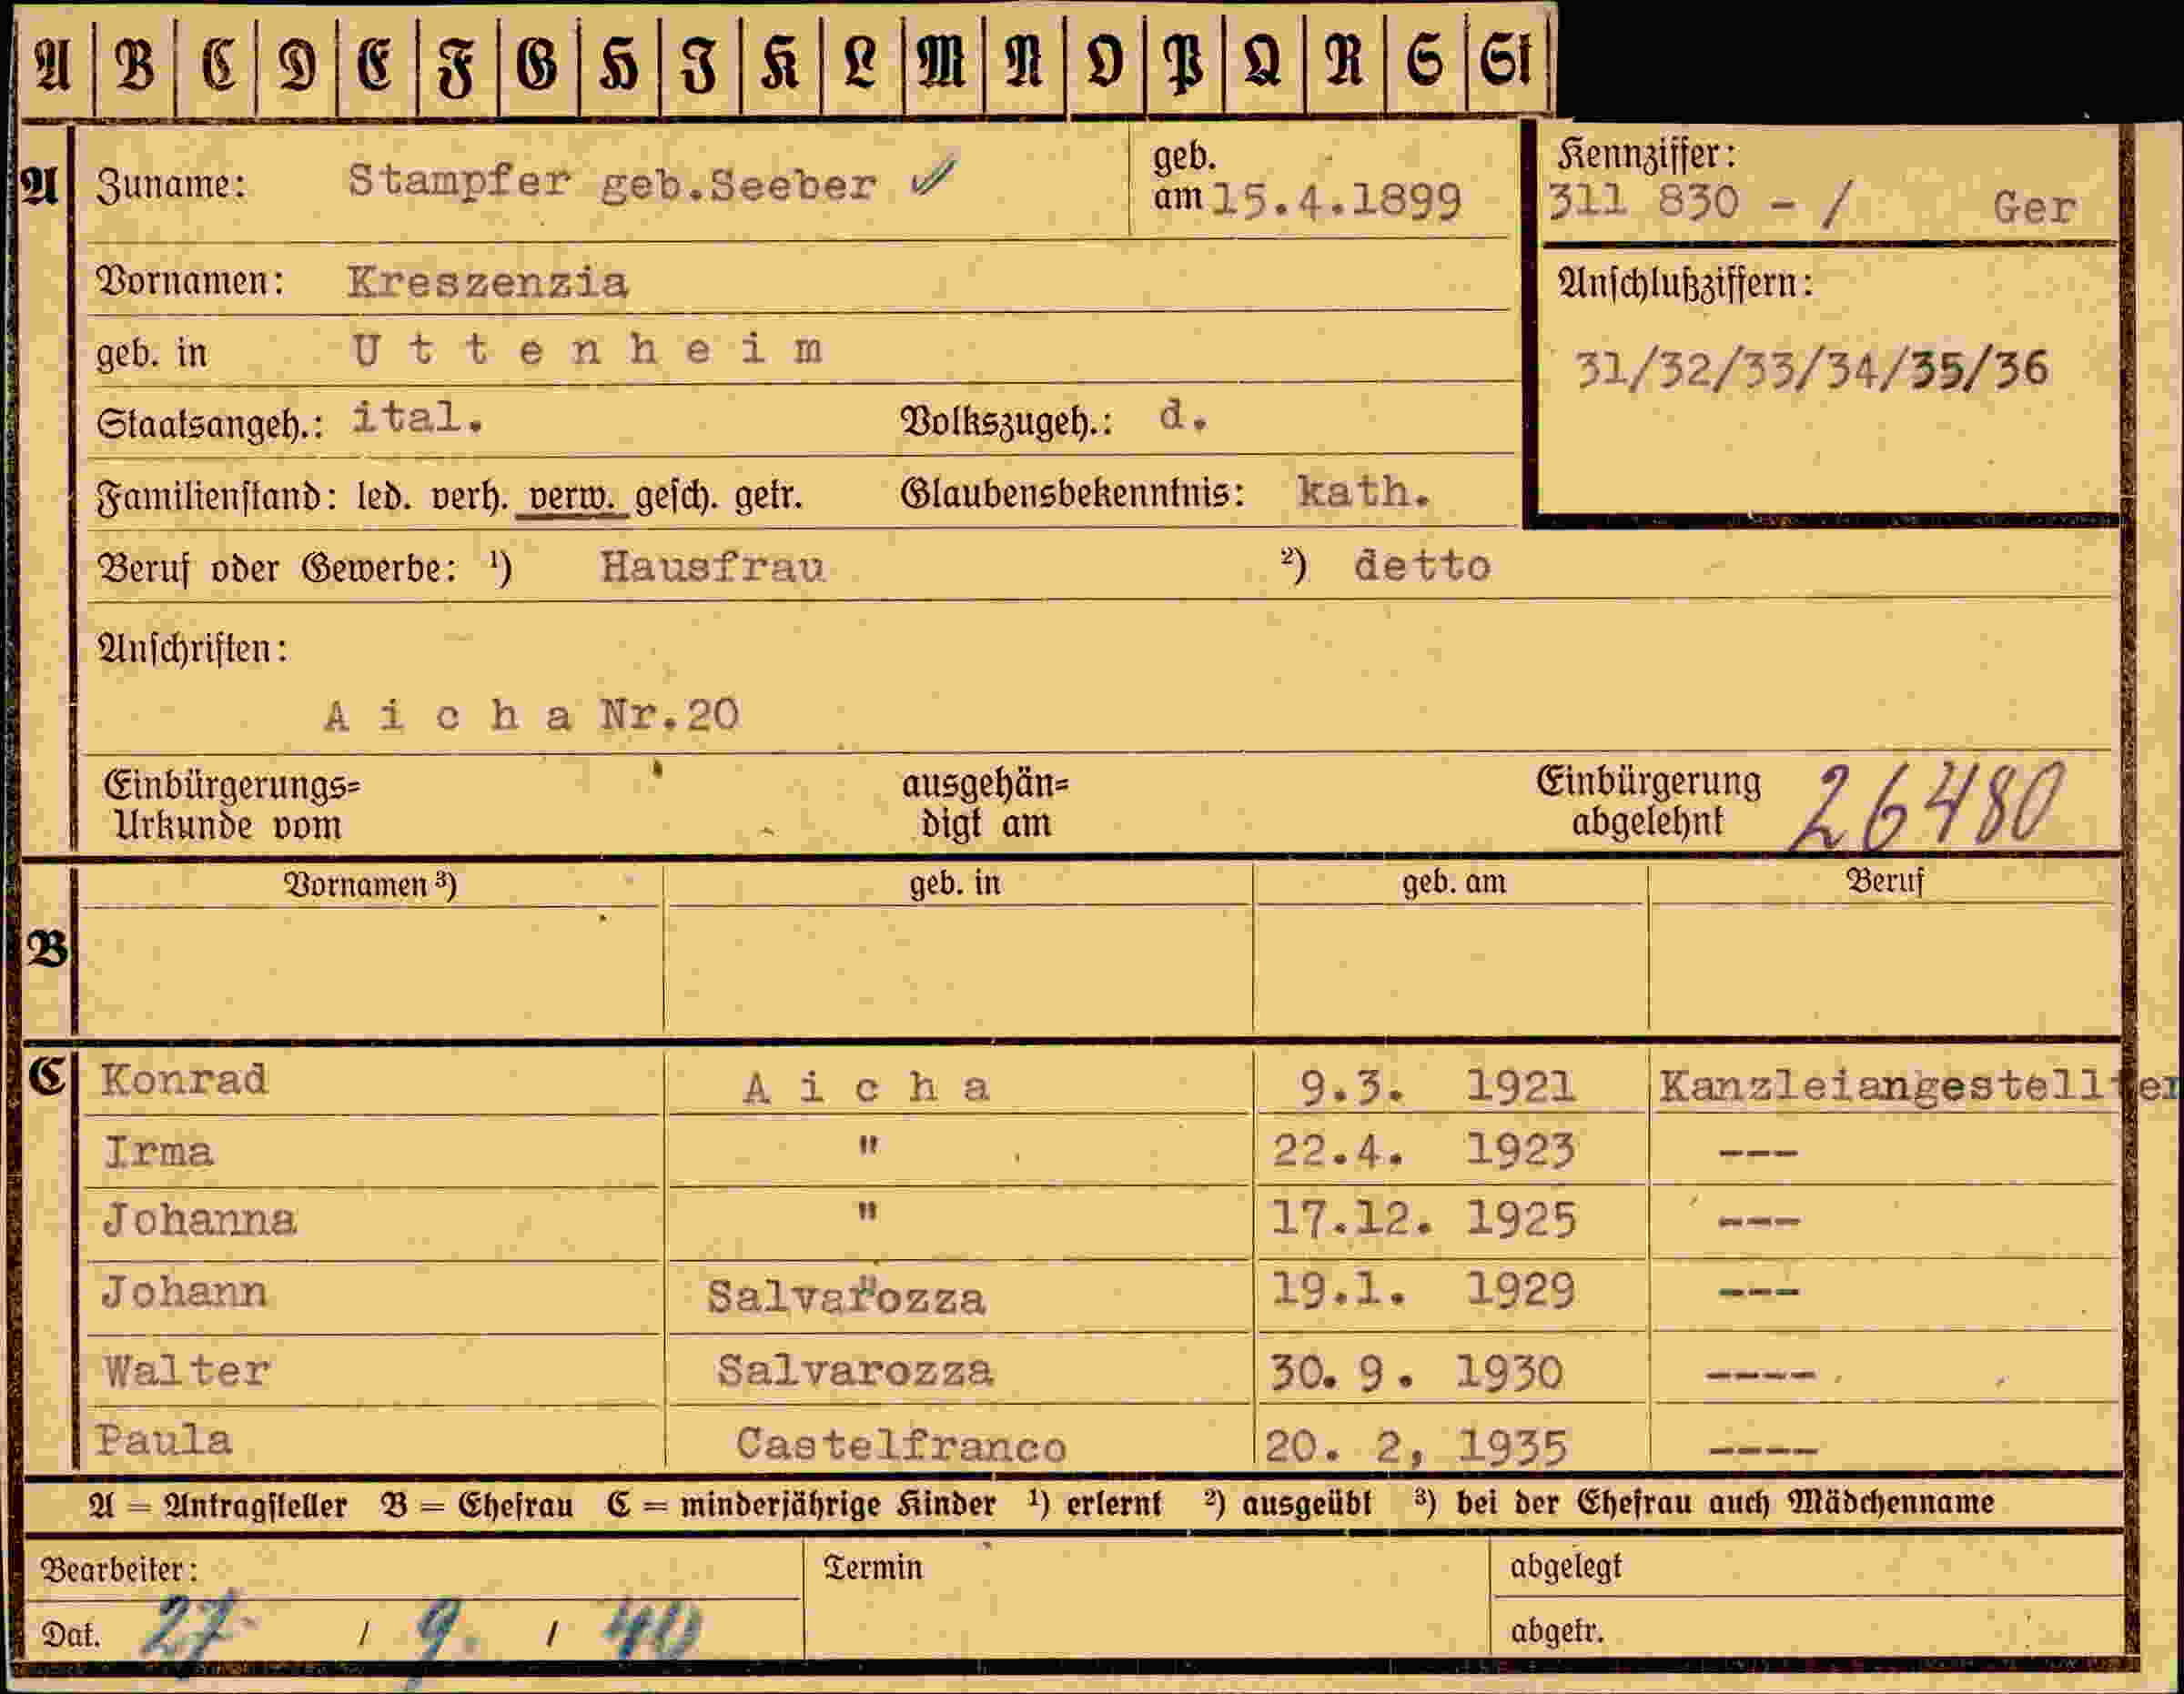 A B C D E F G H I K L M N O P Q R S St
A Zuname: Stampfer geb.Seeber geb. am 15.4.1899
Kennziffer: 311 830 - / Ger
Vornamen: Kreszenzia
Anschlußziffern:
geb. in Uttenheim
31/32/33/34/35/36
Staatsangeh.: ital. Volkszugeh.: d.
Familienstand: led. verh. verw. gesch. getr. Glaubensbekenntnis: kath.
Beruf oder Gewerbe: ¹) Hausfrau ²) detto
Anschriften:
Aicha Nr.20
Einbürgerungs= ausgehän= Einbürgerung 26480
Urkunde vom digt am abgelehnt
Vornamen ³) geb. in geb. am Beruf
B
C Konrad Aicha 9.3. 1921 Kanzleiangestellter
Irma " 22.4. 1923 ---
Johanna " 17.12. 1925 ---
Johann Salvarozza 19.1. 1929 ---
Walter Salvarozza 30. 9. 1930 ----
Paula Castelfranco 20. 2, 1935 ----
A = Antragsteller B = Ehefrau C = minderjährige Kinder ¹) erlernt ²) ausgeübt ³) bei der Ehefrau auch Mädchenname
Bearbeiter: Termin abgelegt
Dat. 27 / 9. / 40 abgetr.